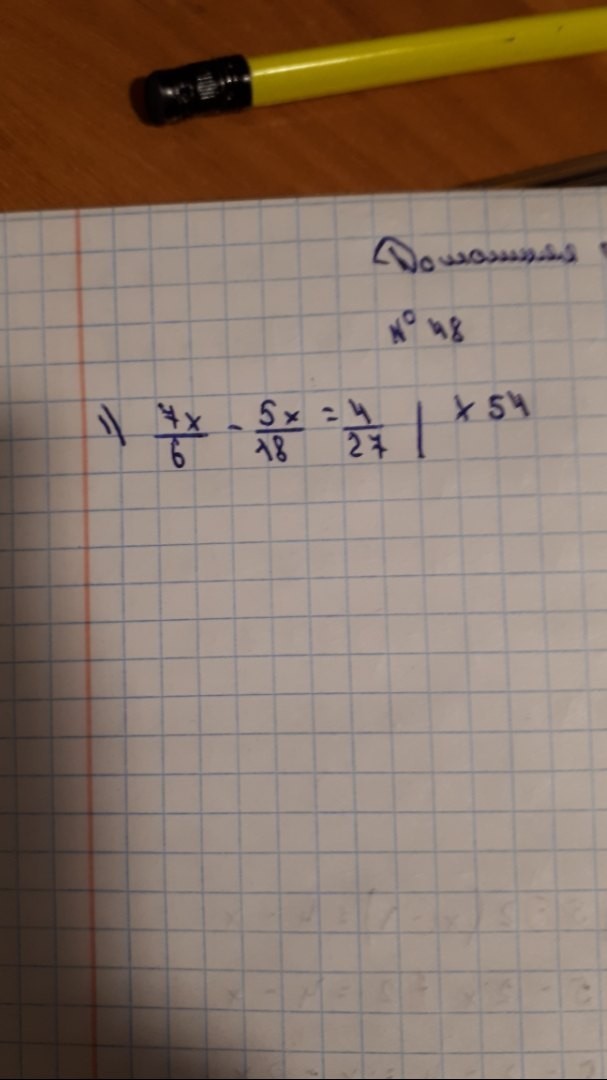 Домашняя
№ 48
1) 7x/6 - 5x/18 = 4/27 | × 54